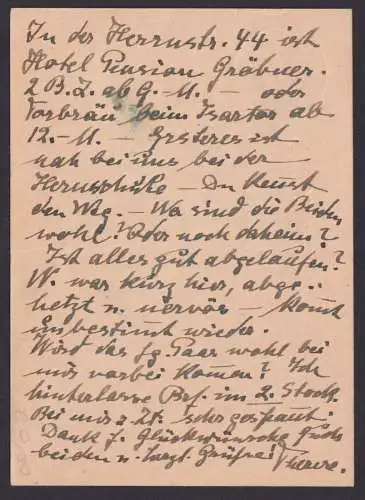 In der Herrnstr. 44 ist
Hotel Pension Gräbner.
2 B. Z. ab 9.- M. — oder
Torbräu beim Isartor ab
12.- M. — Ersteres ist
nah bei uns bei der
— Du kennst
den Weg. — Wo sind die Beiden
wohl? Oder noch daheim?
Ist alles gut abgelaufen?
W. war kurz hier, abge-
hetzt u. nervös — kommt
unbestimmt wieder.
Wird das jg. Paar wohl bei
mir vorbei kommen? Ich
hinterlasse Brf. im 2. Stock.
Bei mir z. Zt. sehr gespannt.
Dank f. Glückwünsche Euch
beiden u. herzl. Grüsse!